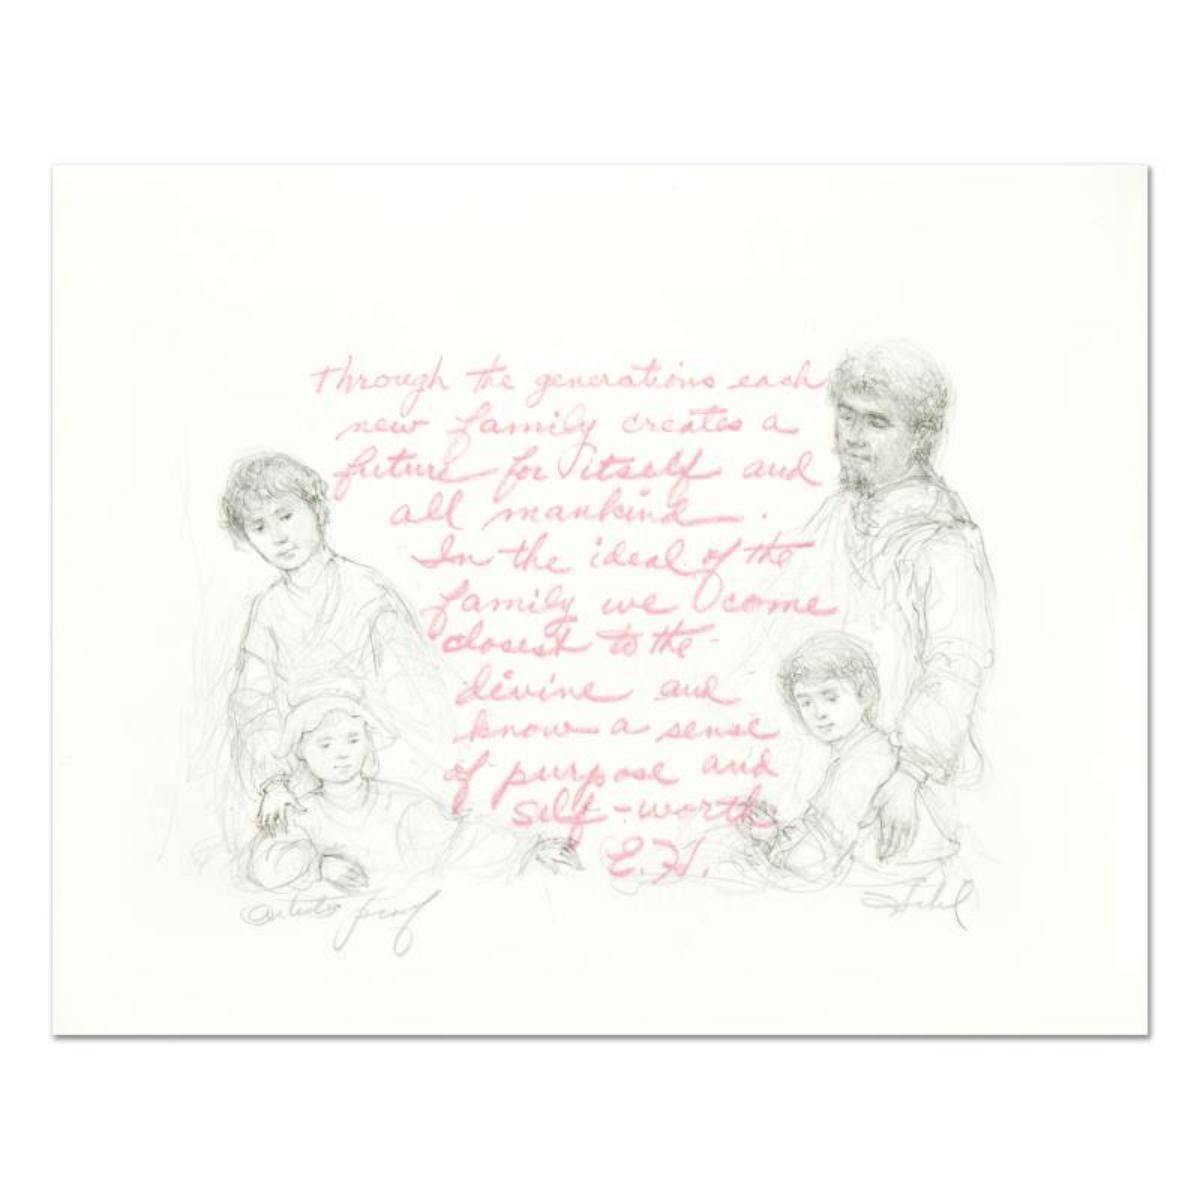 Through the generations each
new family creates a
future for itself and
all mankind.
In the ideal of the
family we come
closest to the
divine and
know a sense
of purpose and
self-worth
E.H.
Artists proof
Hibel